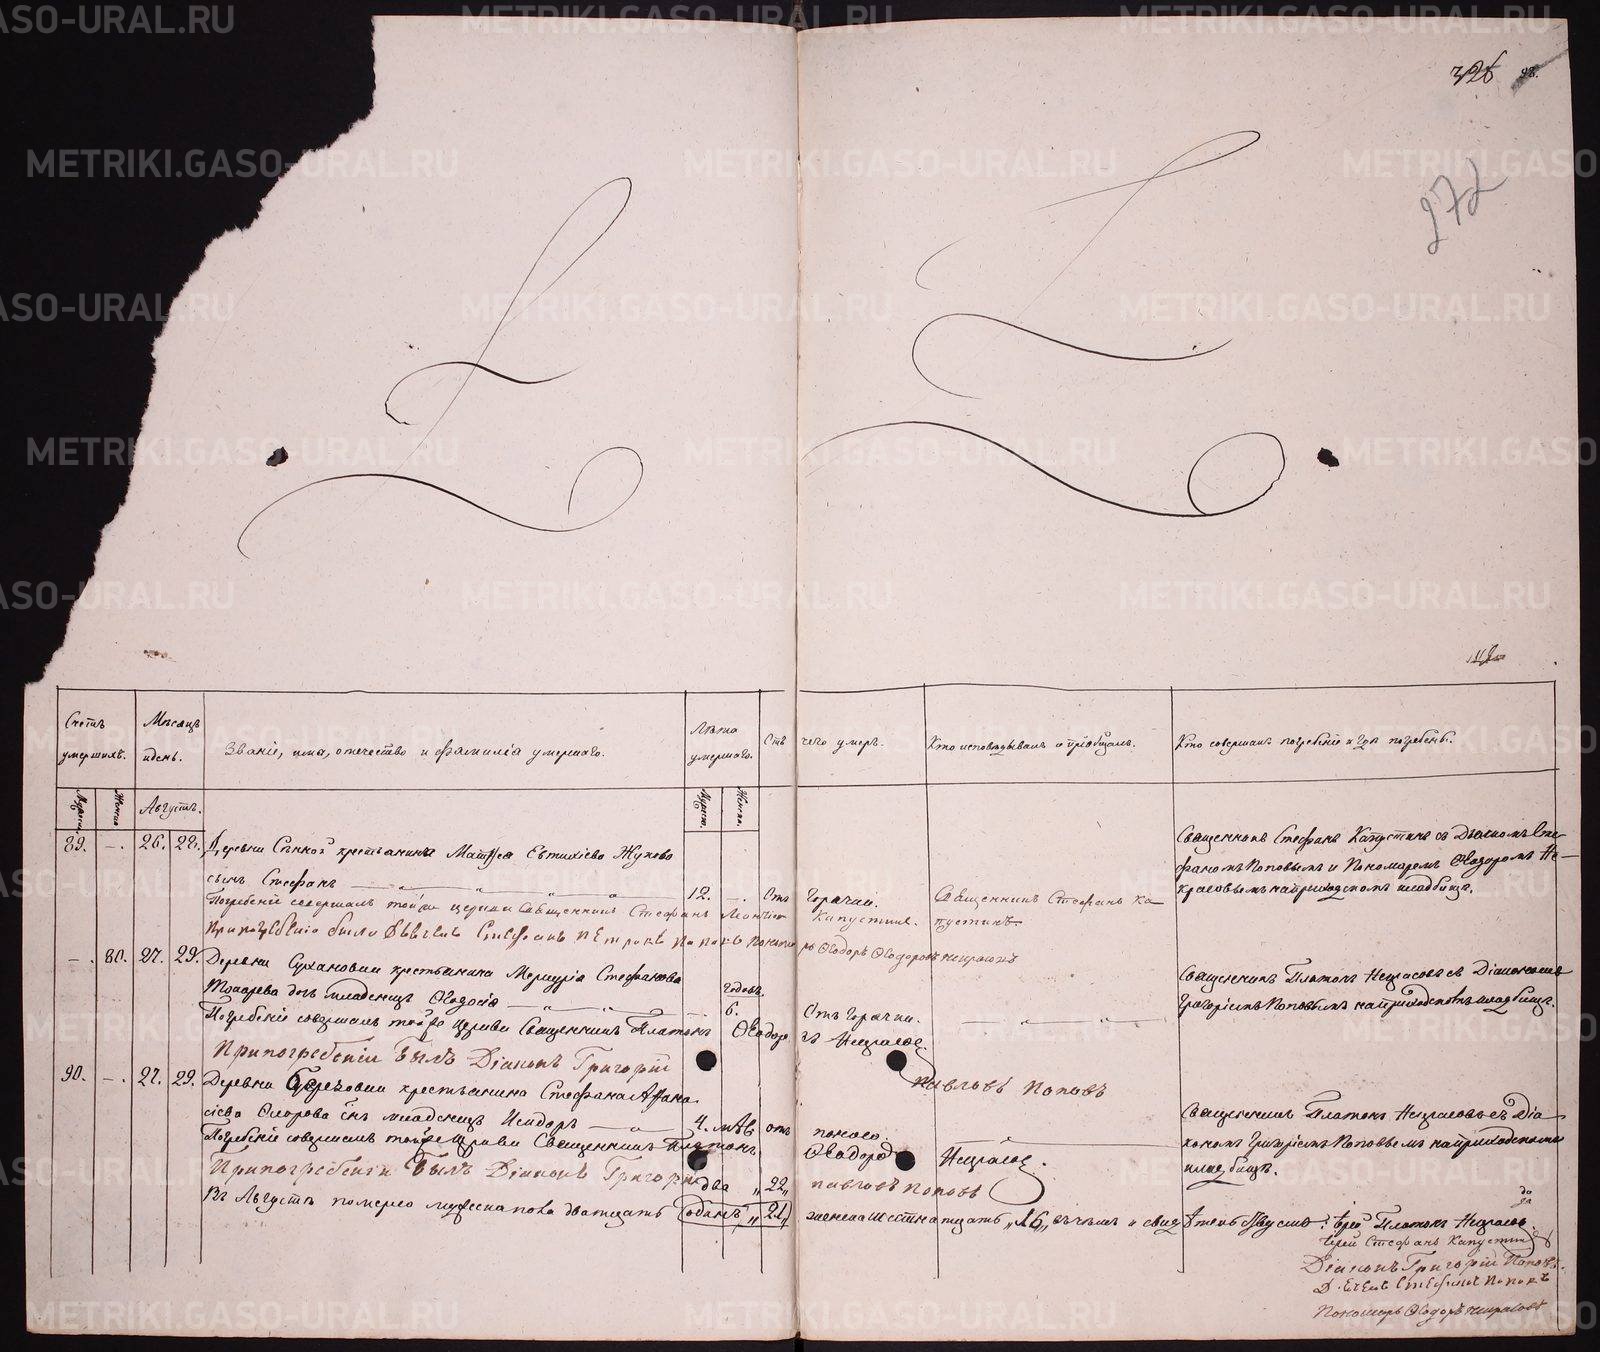 326 98.
272
Счетъ умершихъ.
Мѣсяцъ и день.
Званіе, имя, отечество и фамилія умершаго.
Лѣта умершаго.
Отъ чего умеръ.
Кто исповѣдывалъ и пріобщалъ.
Кто совершалъ погребеніе и гдѣ погребены.
Мужеск. Женск. Августъ. Мужеск. Женск.
89. —. 26. 28. Деревни крестьянина Матѳея Евтихіева Жукова
сынъ Стефанъ 12. —. Отъ горячки. Священникъ Стефанъ Капустинъ
Священникъ Стефанъ Капустинъ съ Дьячкомъ Стефаномъ Поповымъ и Пономаремъ Ѳеодоромъ Некрасовымъ на приходскомъ кладбищѣ.
Погребеніе совершалъ той же церкви Священникъ Стефанъ Леонтіев Капустинъ.
При погребеніи были Дьячекъ Стефанъ Петровъ Поповъ Пономарь Ѳеодоръ Ѳеодоровъ Некрасовъ
—. 80. 27. 29. Деревни Сухановки крестьянина Меркурія Стефанова
Токарева дочь младенецъ Ѳеодосія годовъ. 6. Отъ горячки.
Священникъ Платонъ Некрасовъ съ Діакономъ Григоріемъ Поповымъ на приходскомъ кладбищѣ.
Погребеніе совершалъ той же церкви Священникъ Платонъ Ѳеодоровъ Некрасовъ.
При погребеніи былъ Діаконъ Григорій Павловъ Поповъ
90. —. 27. 29. Деревни Березовки крестьянина Стефана Афанасіева
сынъ младенецъ Исидоръ 4. мѣс отъ поносо.
Священникъ Платонъ Некрасовъ съ Діакономъ Григоріемъ Поповымъ на приходскомъ кладбищѣ.
Погребеніе совершалъ той же церкви Священникъ Платонъ Ѳеодоров Некрасов.
При погребеніи былъ Діаконъ Григорій Павловъ Поповъ
два „22„
Въ Августѣ померло мужеска пола двадцать одинъ „21„ женска шестнадцать „16„ въ чемъ и свидѣтельствуемъ: Іерей Платонъ Некрасовъ.
Іерей Стефанъ Капустинъ
Діаконъ Григорій Поповъ.
Дьячекъ Стефанъ Поповъ
Пономарь Ѳеодоръ Некрасовъ
METRIKI.GASO-URAL.RU